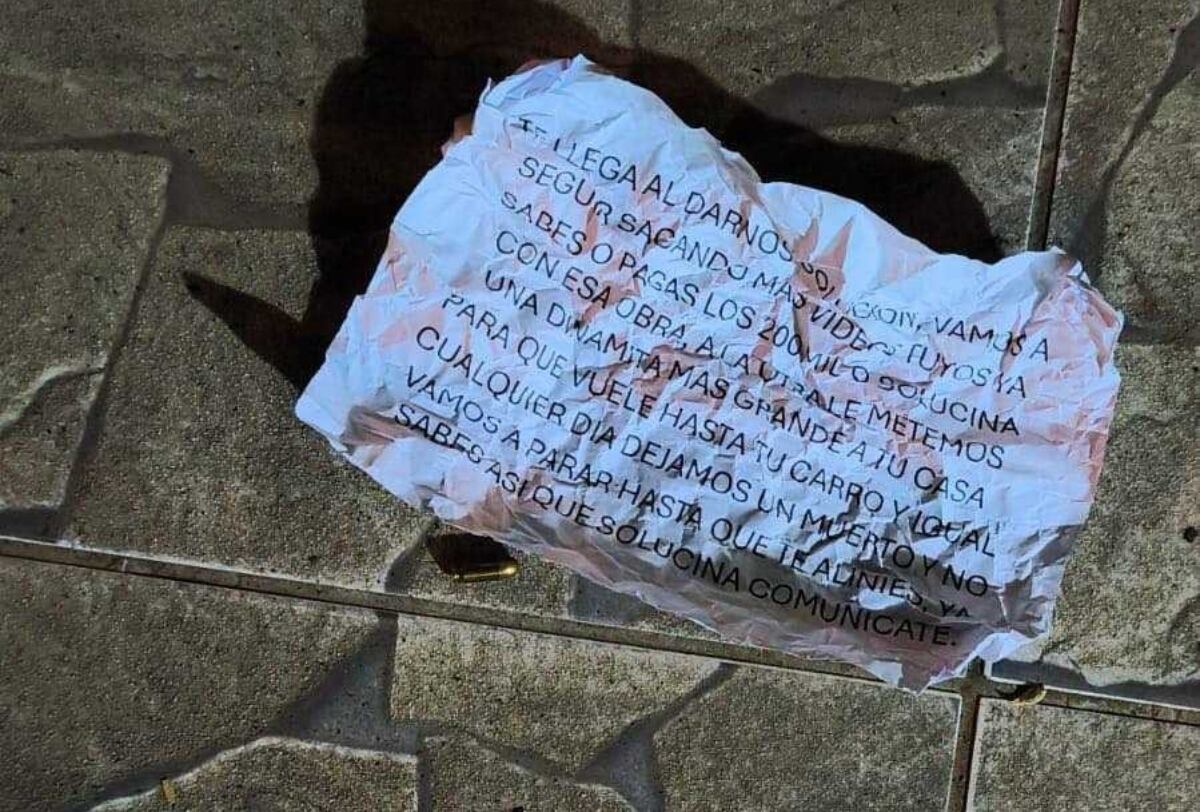 LLEGA AL DARNOS VAMOS A
SEGUR SACANDO MAS VIDEOS TUYOS YA
SABES O PAGAS LOS 200MIL O SOLUCINA
CON ESA OBRA, A LA METEMOS
UNA DINAMITA MAS GRANDE A TU CASA
PARA QUE VUELE HASTA TU CARRO Y IGUAL
CUALQUIER DIA DEJAMOS UN MUERTO Y NO
VAMOS A PARAR HASTA QUE TE ALINIES, YA
SABES ASI QUE SOLUCINA COMUNICATE.